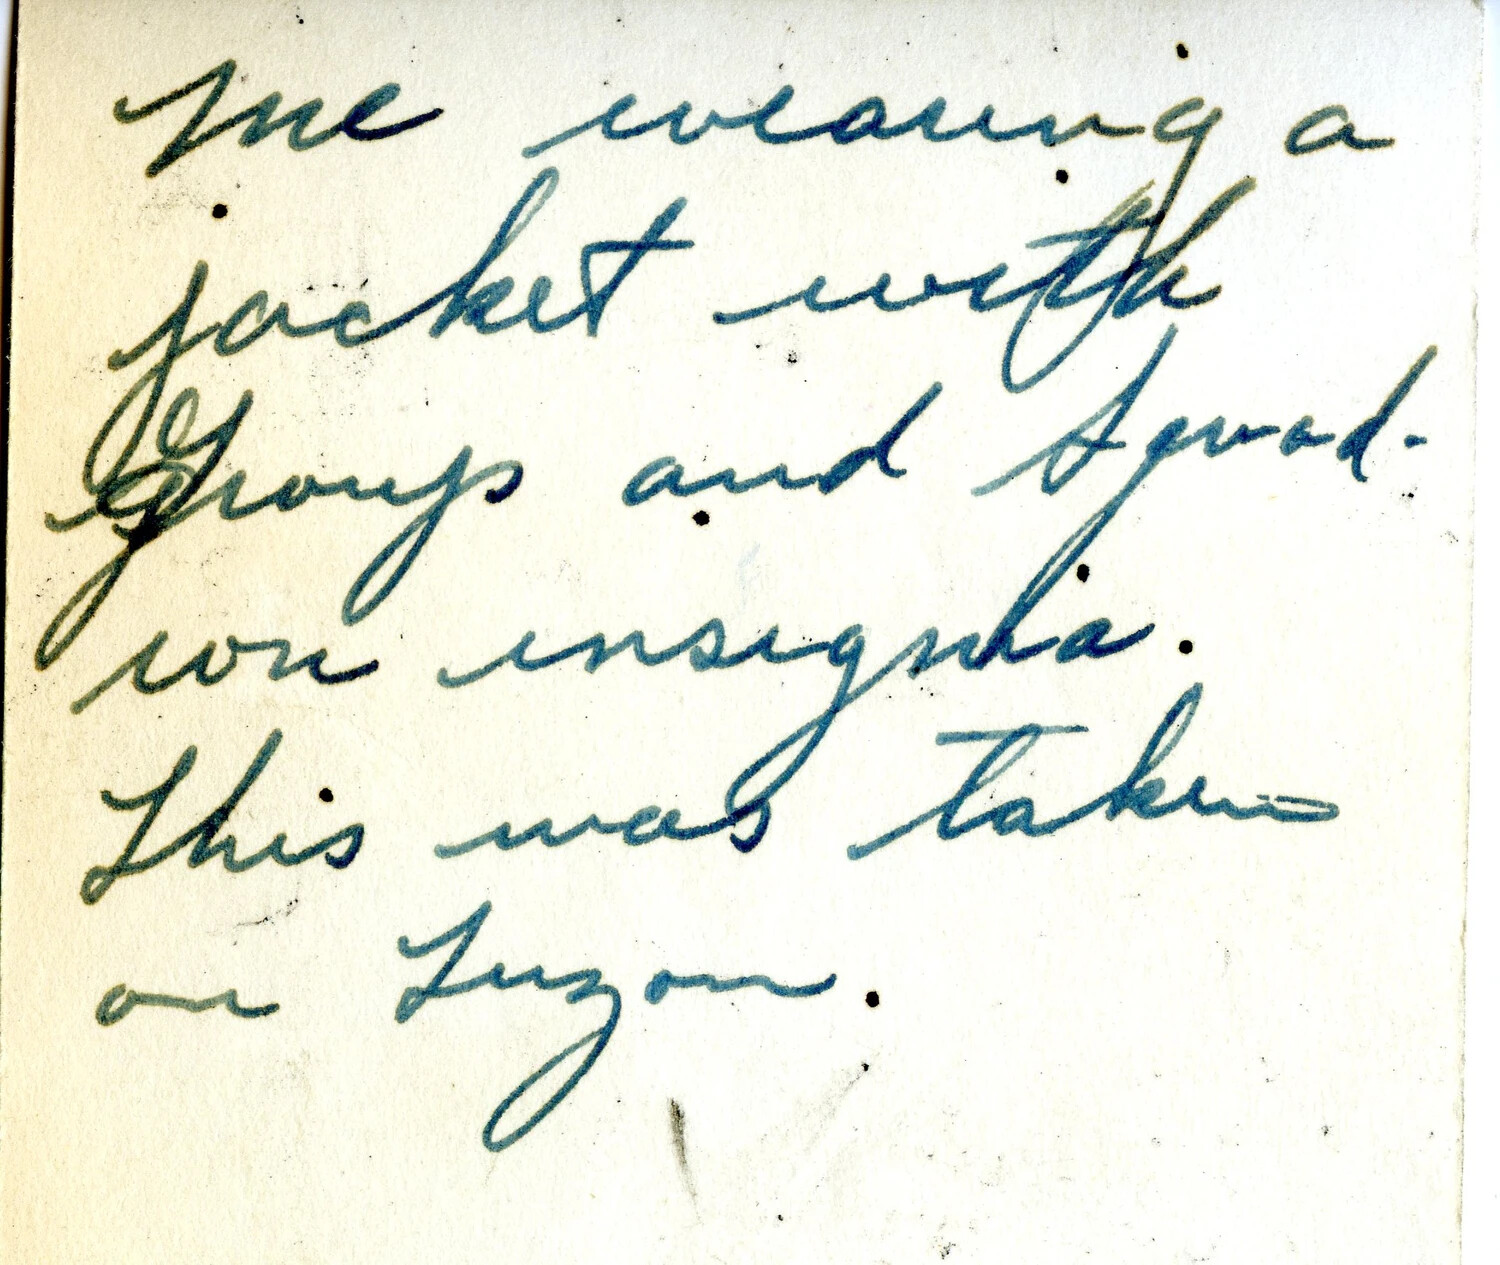 me wearing a
jacket with
Group and Squad-
ron insignia.
This was taken
on Luzon.